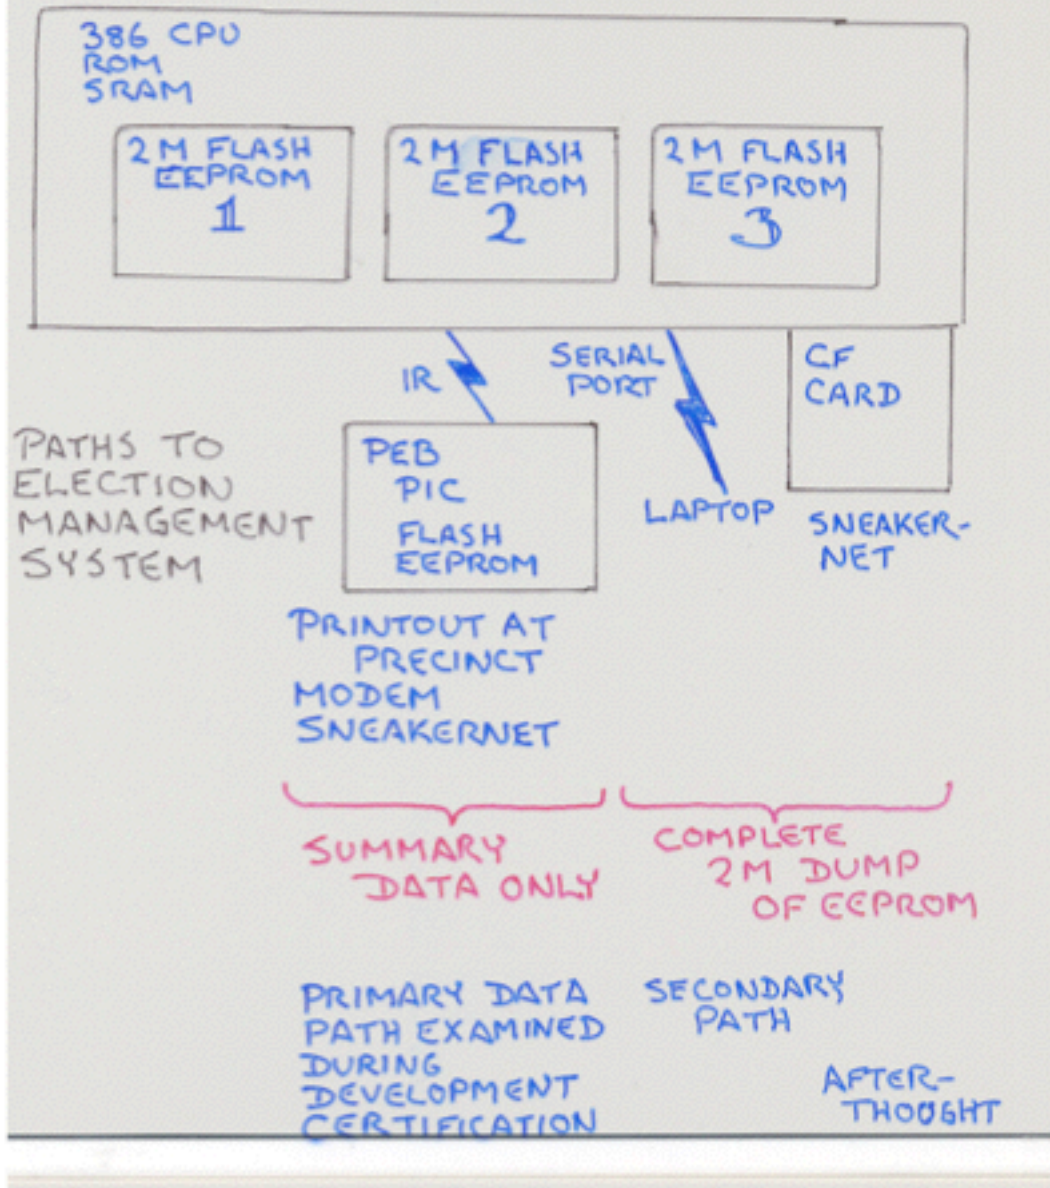 386 CPU
ROM
SRAM
2M FLASH
EEPROM
1
2M FLASH
EEPROM
2
2M FLASH
EEPROM
3
IR
SERIAL
PORT
CF
CARD
PATHS TO
ELECTION
MANAGEMENT
SYSTEM
PEB
PIC
FLASH
EEPROM
LAPTOP
SNEAKER-
NET
PRINTOUT AT
PRECINCT
MODEM
SNEAKERNET
SUMMARY
DATA ONLY
COMPLETE
2M DUMP
OF EEPROM
PRIMARY DATA
PATH EXAMINED
DURING
DEVELOPMENT
CERTIFICATION
SECONDARY
PATH
AFTER-
THOUGHT